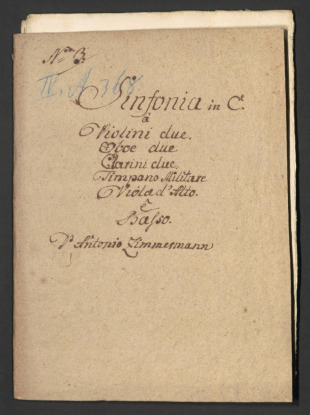 Nro 3.
II. A 368
Sinfonia in C.
à
Violini due.
Oboe due
Clarini due.
Timpano Militare
Viola d'Alto.
è
Basso.
Di Antonio Zimmermann